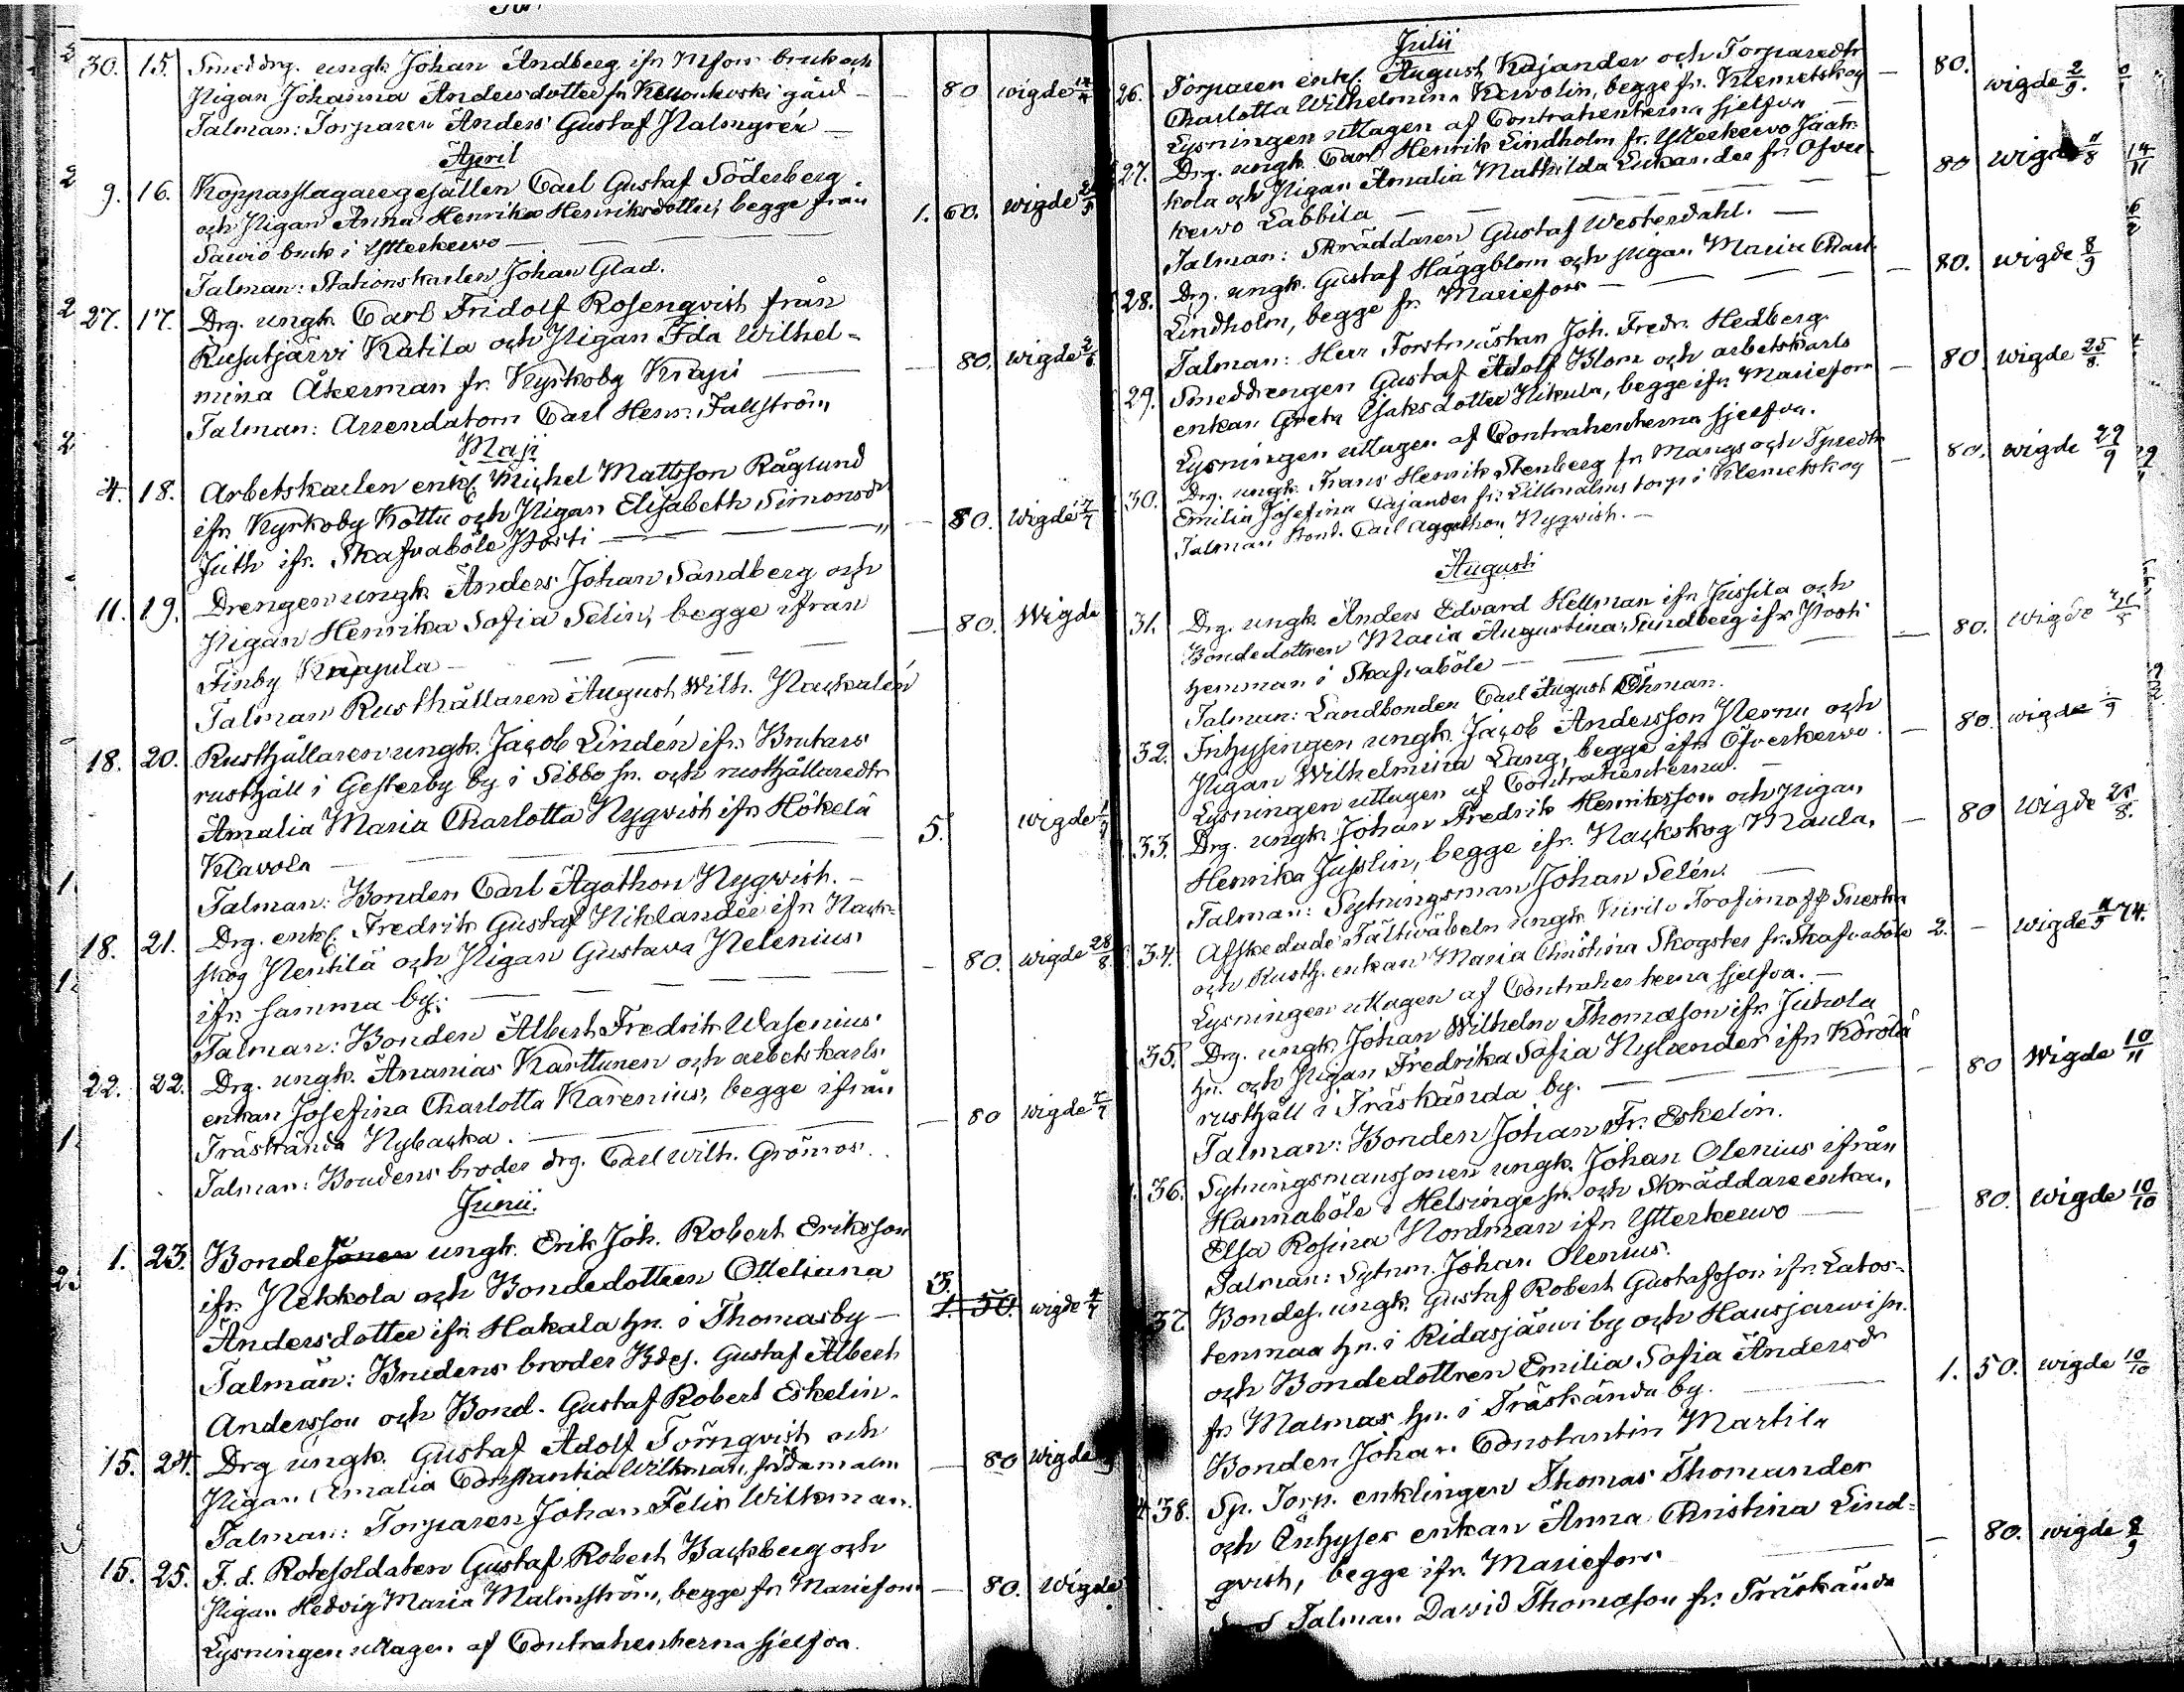 30. 15. Smeddrg. ungk. Johan Andberg ifr. Mfors bruk och
Pigan Johanna Andersdotter fr. gård — 80 wigde
Talman: Torparen Anders Gustaf Malmgrén —
April
9. 16. Kopparslagaregesällen Carl Gustaf Söderberg
och Pigan Anna Henrika Henriksdotter, begge från 1. 60. wigde
Sawio bruk i Ytterkerwo —
Talman: Stationskarlen Johan Glad.
27. 17. Drg. ungk. Carl Fridolf Rosenqvist från
Rusutjärvi Katila och Pigan Ida Wilhel-
mina Åkerman fr. Kyrkoby Krapi — 80. wigde
Talman: Arrendatorn Carl Henr. Fallström
Maji
4. 18. Arbetskarlen enkl. Michel Mattsson Råglund
ifr. Kyrkoby Kottu och Pigan Elisabeth Simonsdr
Juth ifr. Skafvaböle Prosti — 80. Wigde
11. 19. Drengen ungk. Anders Johan Sandberg och
Pigan Henrika Sofia Selin, begge ifrån
Finby — 80. Wigde
Talman Rusthållaren August Wilh. Nackalén
18. 20. Rusthållaren ungk. Jacob Lindén ifr. Brutars
rusthåll i Gesterby by i Sibbo sn. och rusthållaredtr
Amalia Maria Charlotta Nyqvist ifr. Hökelä
Klavola — 5. wigde
Talman: Bonden Carl Agathon Nyqvist. —
18. 21. Drg. enkl. Fredrik Gustaf Niklander ifr. Nack-
skog Pentilä och Pigan Gustava Helenius
ifr. samma by. — 80. wigde 28/8
Talman: Bonden Albert Fredrik Wasenius
22. 22. Drg. ungk. Ananias Karttunen och arbetskarls
enkan Josefina Charlotta Karenius, begge ifrån
Träskända Nybacka. — 80 wigde
Talman: Brudens broder drg. Carl Wilh. Grönroos.
Junii.
1. 23. Bondesonen ungk. Erik Joh. Robert Eriksson
ifr. Pekkola och Bondedottren Otteliana
Andersdotter ifr. Hakala hn. i Thomasby — 1. 50. wigde
Talmän: Brudens broder Bdes. Gustaf Albert
Andersson och Bond. Gustaf Robert Eskelin.
15. 24. Drg ungk. Gustaf Adolf Törnqvist och
Pigan Amalia Constantia Wilkman, — 80 wigde
Talman: Torparen Johan Felix Wilkman.
15. 25. F. d. Rotesoldaten Gustaf Robert Backberg och
Pigan Hedvig Maria Malmström, begge fr. Mariefors — 80. wigde
Lysningen uttagen af Contrahenterna sjelfva.
Julii
26. Torparen enkl. August Kajander och Torparedtr
Charlotta Wilhelmina Kerwolin, begge fr. Klemetskog — 80. wigde 2/9.
Lysningen uttagen af Contrahenterna sjelfva —
27. Drg. ungk. Carl Henrik Lindholm fr. Ytterkerwo Jaak-
kola och Pigan Amalia Mathilda Lukander fr. Öfver-
kerwo Labbila — 80 wigde
Talman: Skräddaren Gustaf Westerdahl. —
28. Drg. ungk. Gustaf Häggblom och pigan Maria Charl.
Lindholm, begge fr. Mariefors — 80. wigde 8/9
Talman: Herr Forstmästan Joh. Fredr. Hedberg.
29. Smeddrengen Gustaf Adolf Blom och arbetskarls
enkan Greta Isaksdotter Nikula, begge ifr. Mariefors — 80. wigde 25/8.
Lysningen uttagen af Contrahenterna sjelfva.
30. Drg. ungk. Frans Henrik Stenberg fr. Mangs och Tparedtr
Emilia Josefina Cajander fr. Lillmalms torp i Klemetskog — 80. wigde 29/9
Talman Bond. Carl Agathon Nyqvist. —
Augusti
31. Drg. ungk. Anders Edvard Hellman ifr. Jussila och
Bondedottren Maria Augustina Sundberg ifr. Prosti
hemman i Skafvaböle — 80. Wigde
Talman: Landbonden Carl August Öhman.
32. Inhysingen ungk. Jacob Andersson och
Pigan Wilhelmina Lang, begge ifr. Öfverkerwo. — 80. wigde
Lysningen uttagen af Contrahenterna. —
33. Drg. ungk. Johan Fredrik Henriksson och Pigan
Henrika Jusslin, begge ifr. Nackskog Maula, — 80 Wigde
Talman: Sytningsman Johan Selén. —
34. Afskedade Fältwäbeln ungk. Kirilo Trofimoff
och Rusth. enkan Maria Christina Skogster fr. Skafvaböle 2. — wigde 74.
Lysningen uttagen af Contrahenterna sjelfva. —
35. Drg. ungk. Johan Wilhelm Thomasson ifr. Jukola
hn. och Pigan Fredrika Sofia Nylander ifr. Körölä
rusthåll i Träskända by. — 80 Wigde 10/11
Talman: Bonden Johan Fr. Eskelin.
36. Sytningsmanssonen ungk. Johan Olenius ifrån
Hannaböle i Helsinge sn. och Skräddareenkan,
Elsa Rosina Nordman ifr. Ytterkerwo — 80. wigde 10/10
Talman: Sytnm. Johan Olenius.
37. Bondes. ungk. Gustaf Robert Gustafsson ifr. Latos-
tenmaa hn. i Ridasjärwi by och Hausjärwi sn.
och Bondedottren Emilia Sofia Andersdr
fr. Malmas hn. i Träskända by. — 1. 50. wigde 10/10
Bonden Johan Constantin Martila
38. Sp. Torp. enklingen Thomas Thomander
och Inhyses enkan Anna Christina Lind-
qvist, begge ifr. Mariefors — 80. wigde 8/9
Talman David Thomasson fr. Träskända